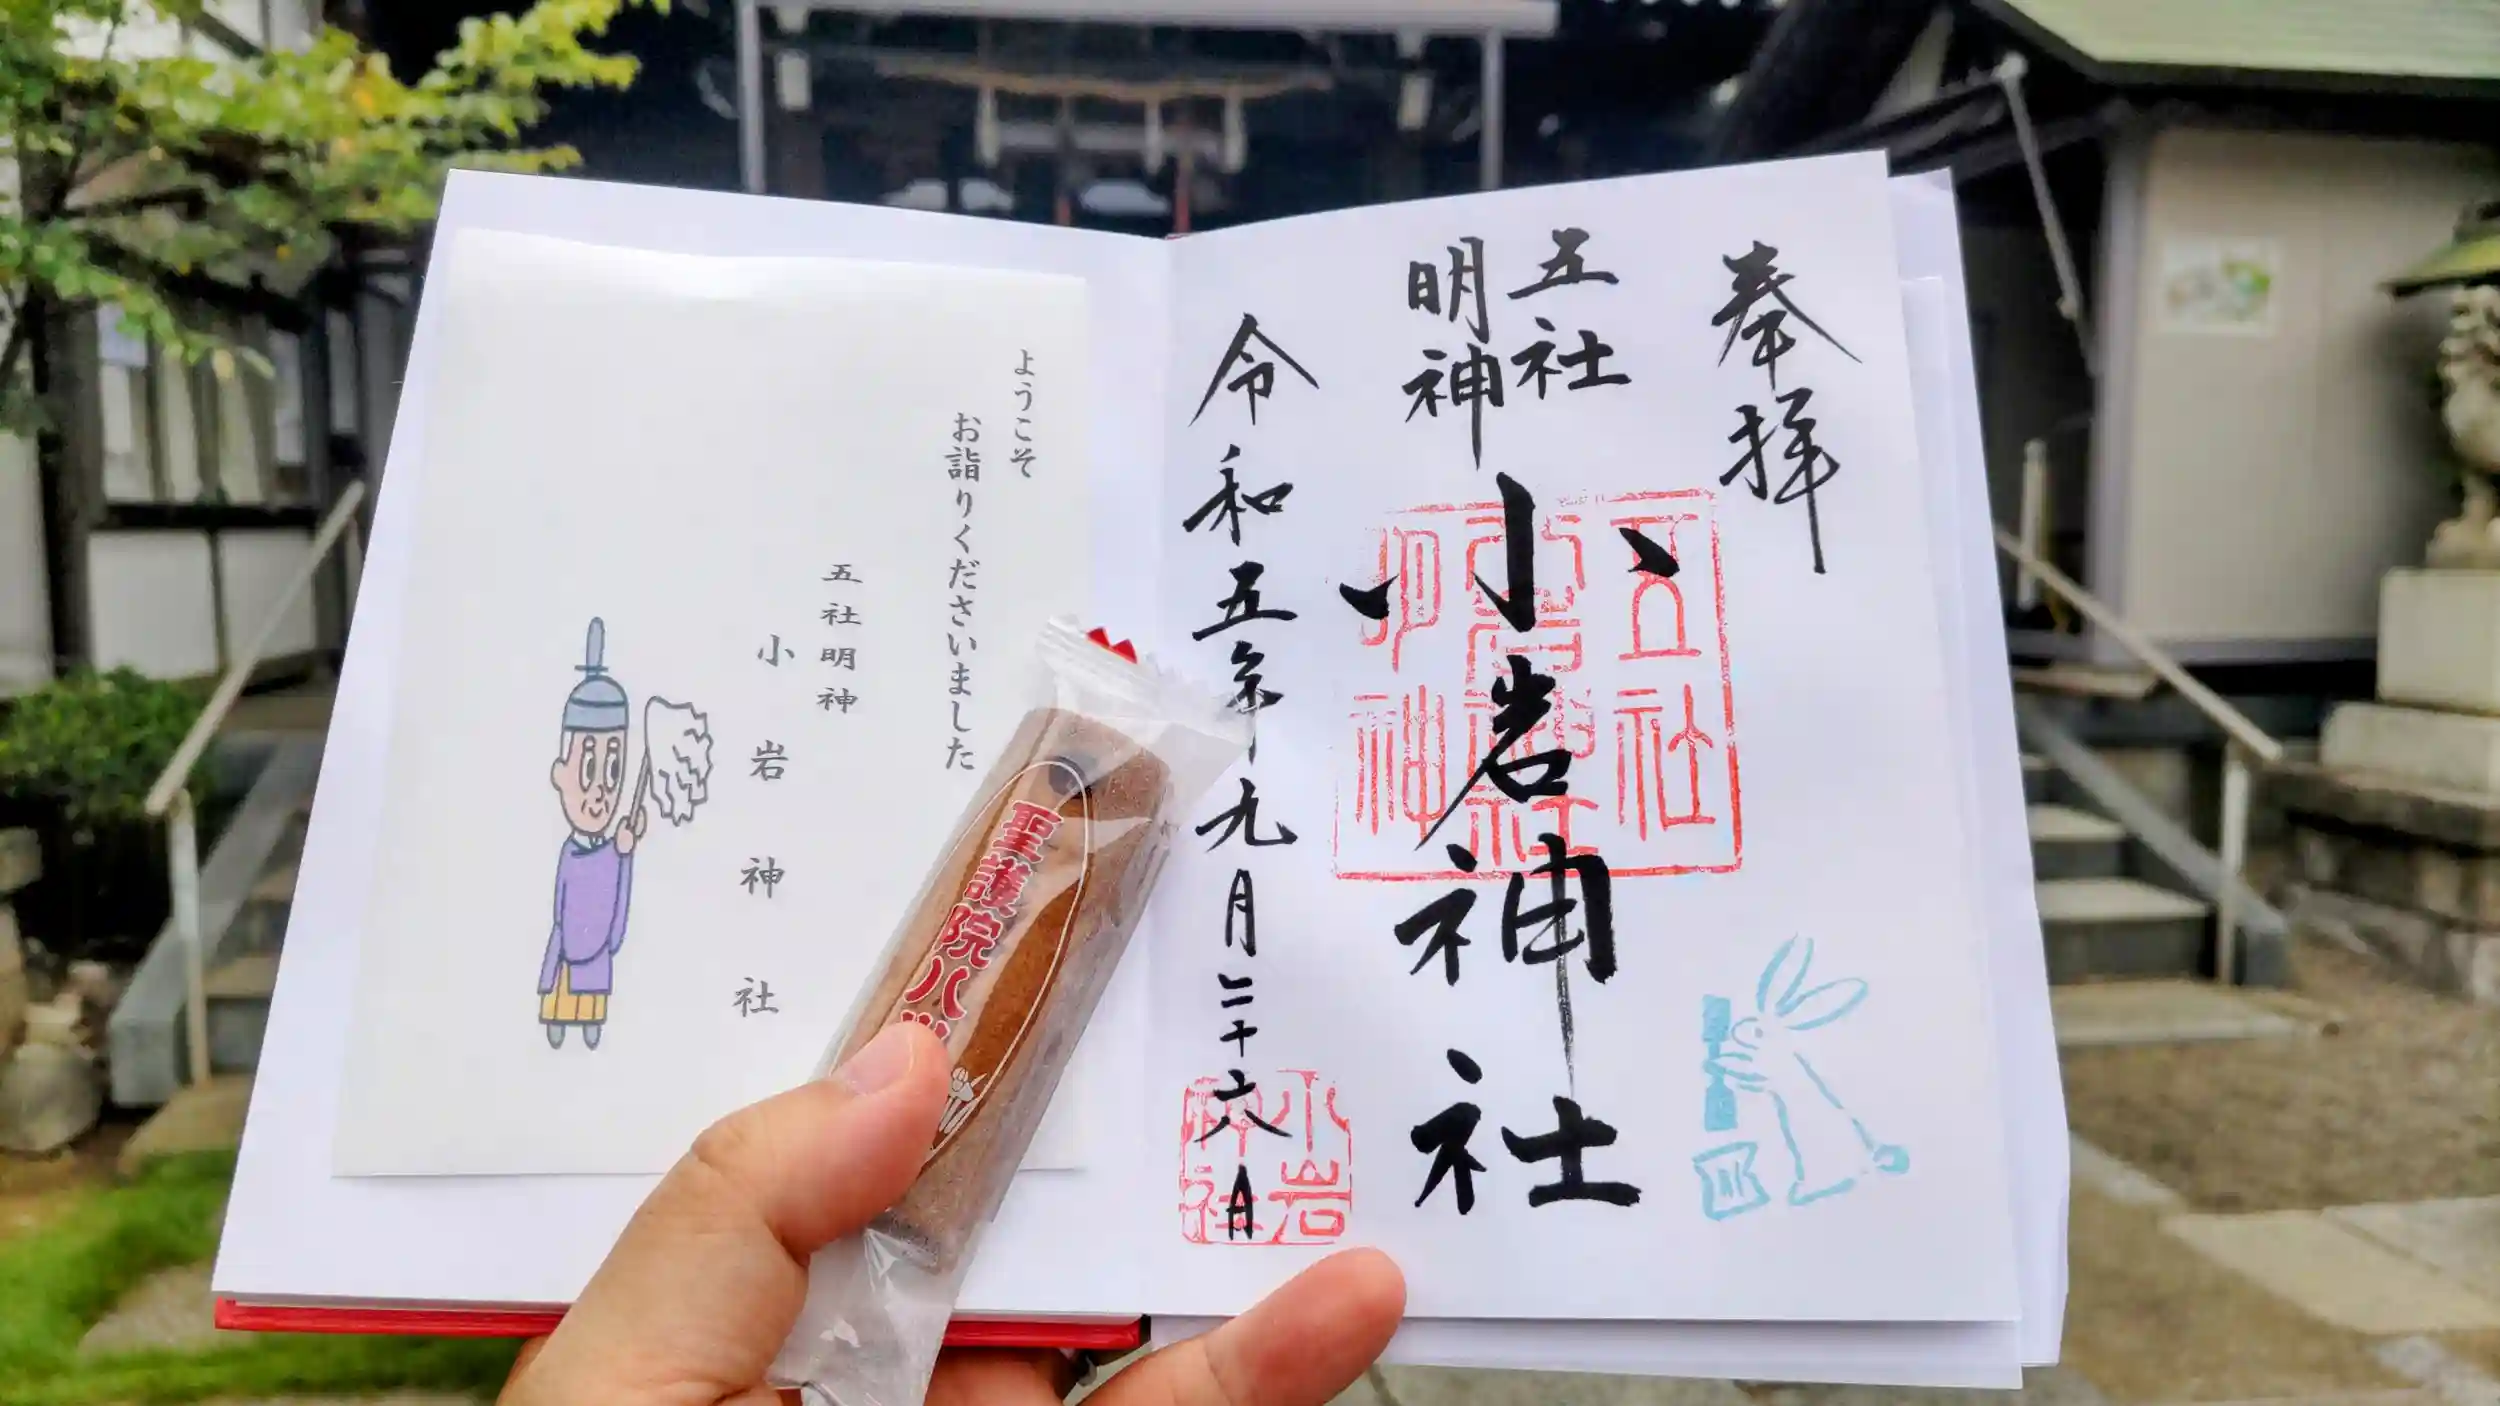 奉拝
五社
明神
小岩神社
令和五年九月二十六日
五社
小岩神社
明神
小岩
神社
ようこそ
お詣りくださいました
五社明神
小岩神社
聖護院八